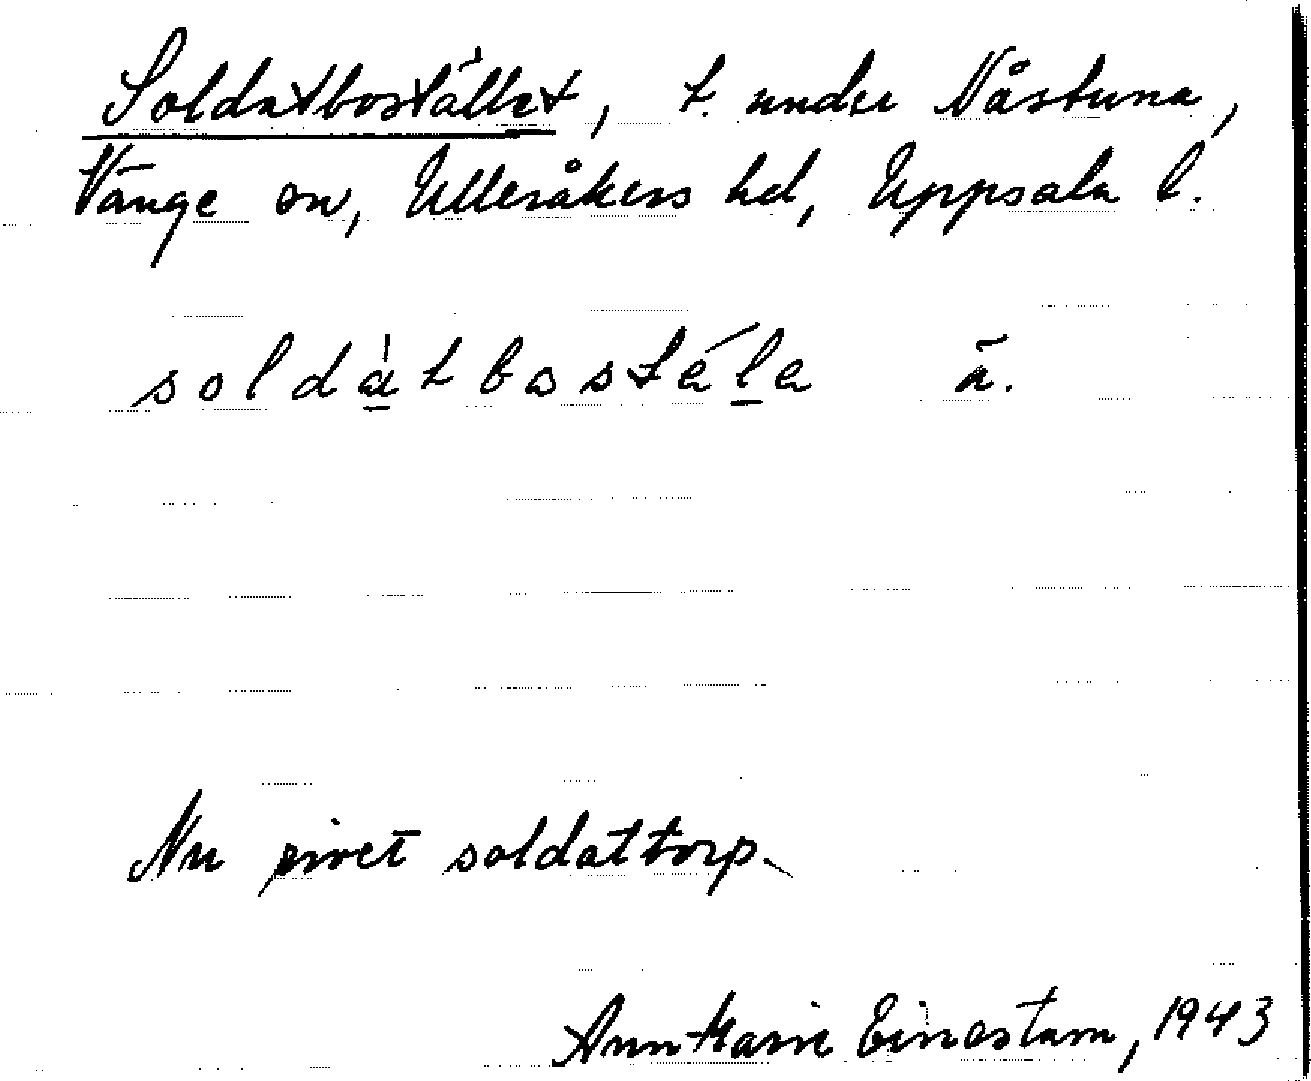 Soldatbostället, t. under Nåstuna,
Vänge sn, Ulleråkers hd, Uppsala l.
soldàtbostélа ā.
Nu rivet soldattorp.
Ann Marie Einestam, 1943